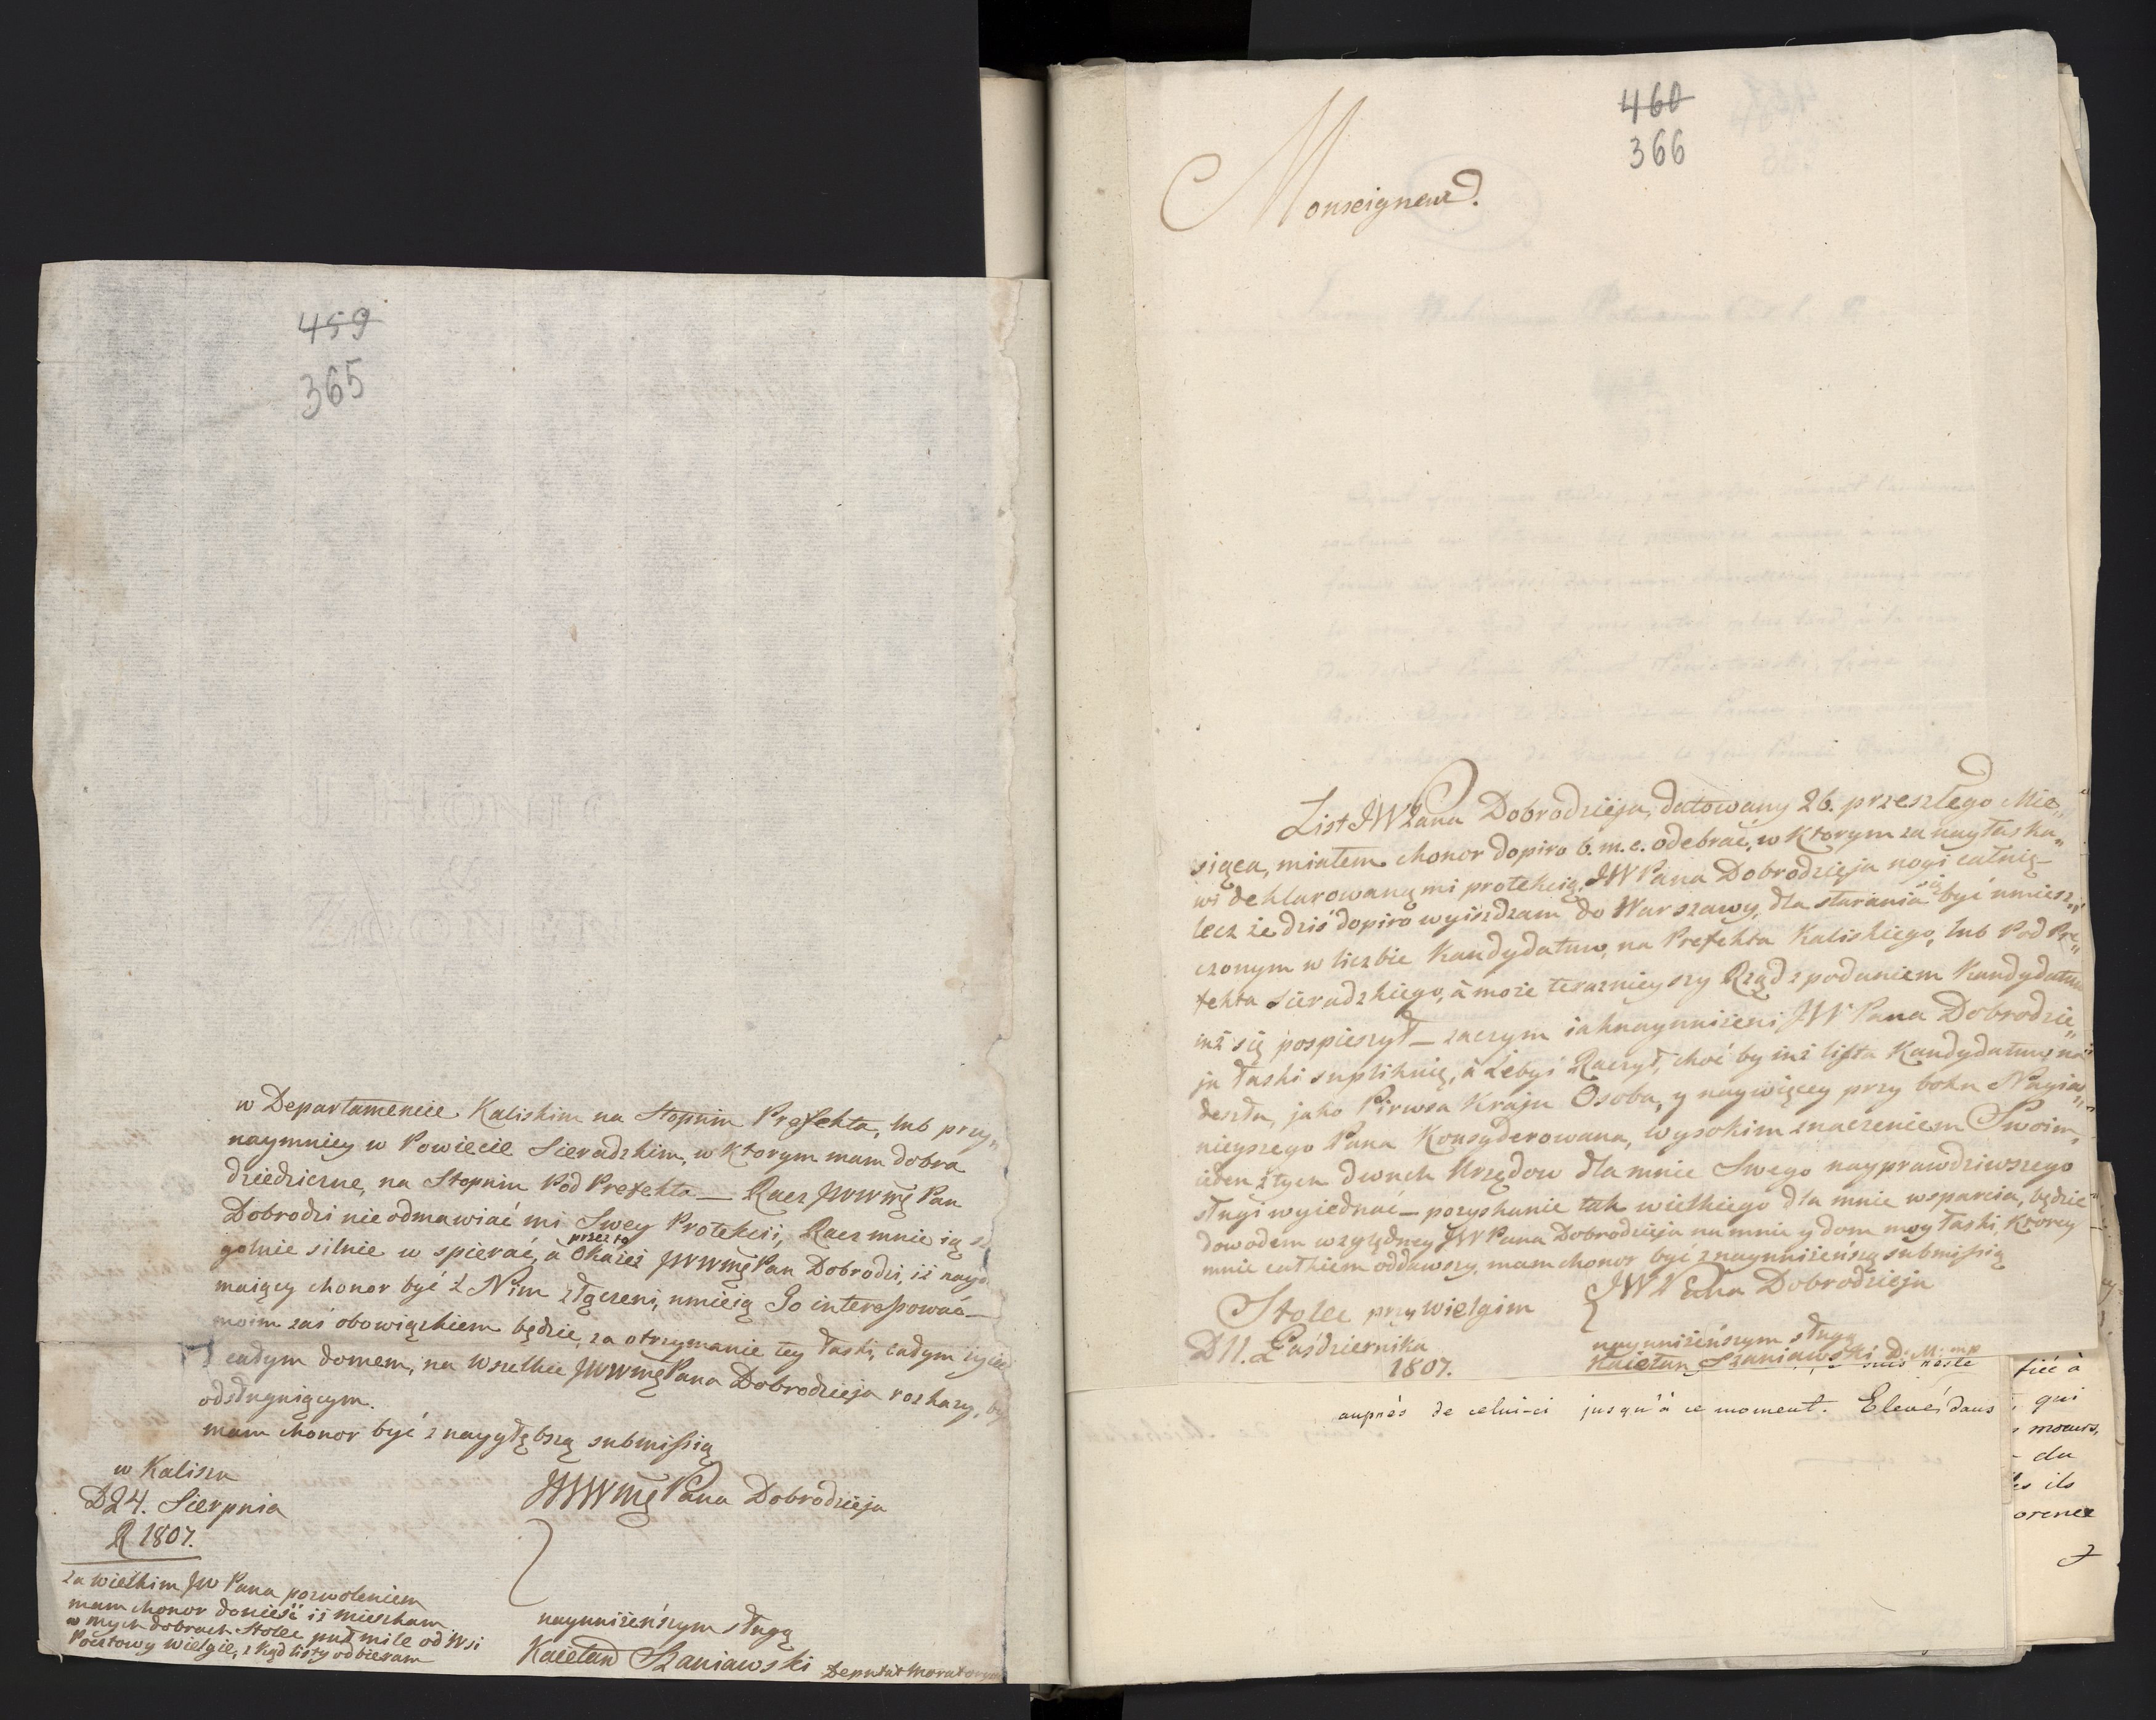 459
365
w Departamencie Kaliskim na Stopniu Prefekta, lub przy„
naymniey w Powiecie Sieradzkim, w Ktorym mam dobra
dziedziczne, na Stopniu Pod Prefekta — Racz JWWMę Pan
Dobrodzi nie odmawiać mi Swey Protekcii, Racz mnie ią
golnie silnie w spierać, à przez to Okażesz JWWMę Pan Dobrodzi, iż
maiący chonor być z Nim złączeni, umieią Go interessować —
moim zaś obowiązkiem będzie, za otrzymanie tey łaski, całym życiem
z całym domem, na wszelkie JWWMę Pana Dobrodzieja rozkazy,
odsługuiącym.
mam chonor być z naygłębszą submissią
w Kaliszu
D 24. Sierpnia
R 1807.
JWWMę Pana Dobrodzieja
za wielkim JW Pana pozwoleniem
mam chonor donieść iż mieszkam
w mych dobrach Stolec puł mile od Wsi
Pocztowy Wielgie, z kąd listy odbieram
nayuniżeńszym sługą
Kaietan Szaniawski Deputat
460
366
Monseigneur.
List JW Pana Dobrodzieja, datowany 26. przeszłego Mie„
siąca, miałem chonor dopiro 6. m. c. odebrać, w Ktorym za nayłaska„
wi deklarowaną mi protekcią, JW Pana Dobrodzieja nogi całuię —
lecz że dziś dopiro wyiezdzam do Warszawy, dla starania się być umiesz„
czonym w liczbie Kandydatuw, na Prefekta Kaliskiego, lub Pod Pre„
fekta Sieradzkiego, à może terazniey szy Rząd z podaniem Kandydatuw
iuż się pospieszył — zaczym iaknayuniżeni JW Pana Dobrodzie„
ja łaski suplikuię, à żebyś Raczył, choć by iuż lista Kandydatuw na„
deszła, jako Pirwsa Kraju Osoba, y naywięcey przy boku Nayias„
nieyszego Pana Konsyderowana, wysokim znaczeniem Swoim,
ieden z tych dwuch Urzędow dla mnie Swego nayprawdziwszego
sługi wyiednać — pozyskanie tak wielkiego dla mnie wsparcia, będzie
dowodem względney JW Pana Dobrodzieja na mnie y dom moy łaski, Ktorey
mnie całkiem oddawszy, mam chonor być z nayuniżeńszą submissią
JW Pana Dobrodzieja
Stolec przy Wielgim
D 11. Pażdziernika
1807.
nayuniżeńszym sługą
Kaietan Szaniawski D. M. mp
auprès de celui-ci jusqu'à ce moment. Elevé dans
fié à
qui
moeurs,
du
ils